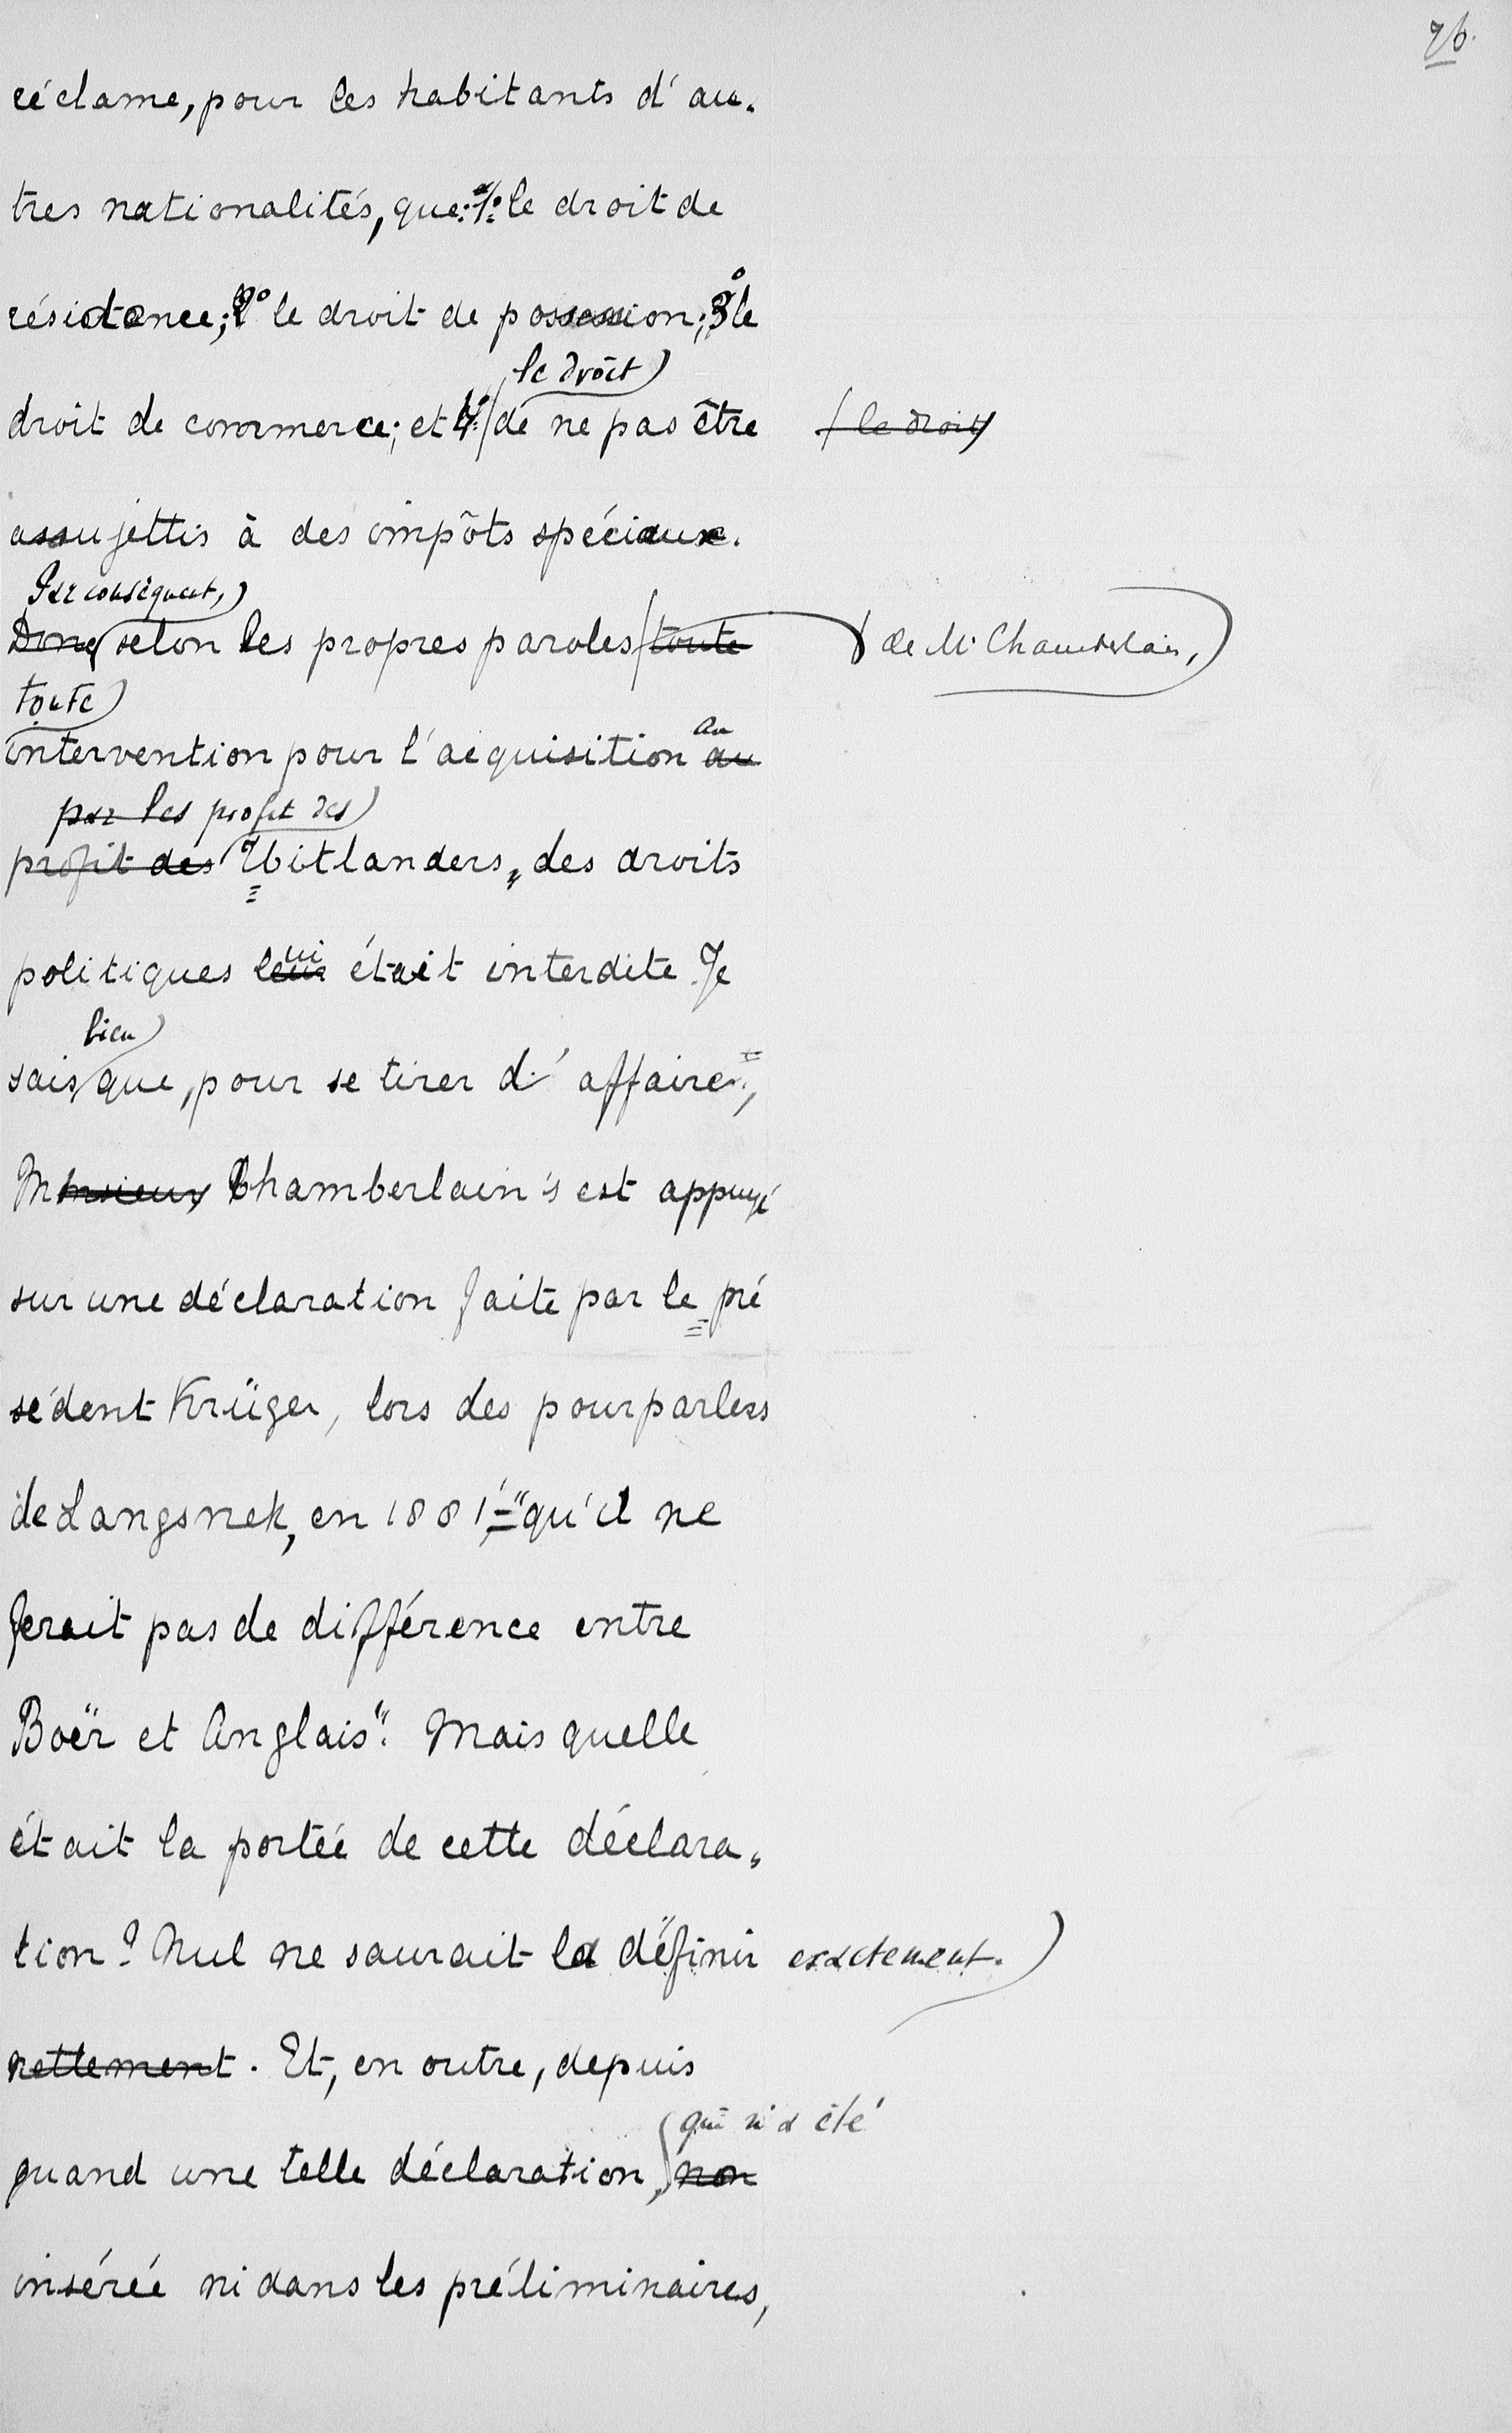 76.
réclame, pour les habitants d'au-
tres nationalités, que: 1º le droit de
résidence; 2º le droit de possession; 3º le
le droit)
droit de commerce; et 4º (de ne pas être (le droit)
assujettis à des impôts spéciaux.
Par conséquent,)
Donc, selon les propres paroles toute de M. Chamberlain,)
toute)
intervention pour l'acquisition au au
par les profit des)
profit des Uitlanders, des droits
politiques leur lui était interdite. Je
bien)
sais que, pour se tirer d'affaire,
Monsieur Chamberlain s'est appuyé
sur une déclaration faite par le pré
sident Krüger, lors des pourparlers
de Langsnek, en 1881, - "qu'il ne
ferait pas de différence entre
Boër et Anglais". Mais quelle
était la portée de cette déclara-
tion? Nul ne saurait la définir exactement.)
nettement. Et, en outre, depuis
qui n'a été
quand une telle déclaration, non
insérée ni dans les préliminaires,